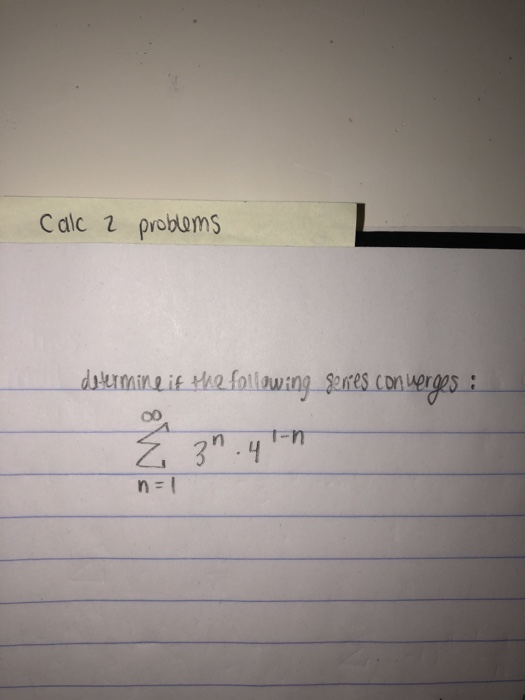 Calc 2 problems
determine if the following series converges :
∞
Σ 3ⁿ · 4¹⁻ⁿ
n = 1